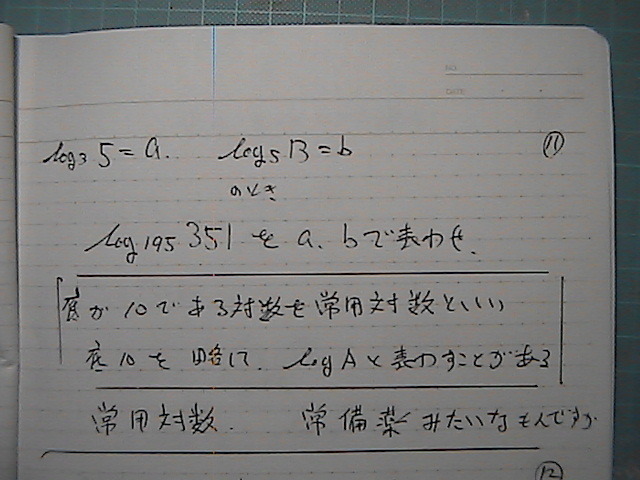 NO.
DATE
log₃ 5 = a. log₅ 13 = b ⑪
のとき
log₁₉₅ 351 を a. b で表わせ.
底が 10 である対数を常用対数といい
底 10 を 略して. log A と表わすことがある
常用対数. 常備薬みたいなもんですか
⑫